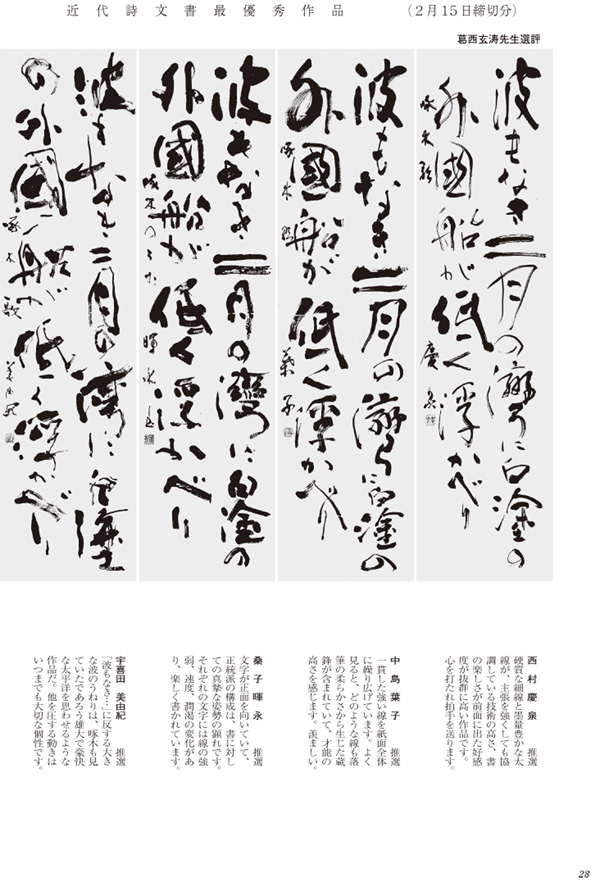 近代詩文書最優秀作品
（２月１５日締切分）
葛西玄涛先生選評
波もなき二月の湾に白塗の
外國船が低く浮かべり
啄木歌 慶泉
波もなき二月の湾に白塗の
外國船が低く浮かべり
啄木歌 葉子
波もなき二月の湾に白塗の
外國船が低く浮かべり
啄木のうた 暉永
波もなき二月の湾に白塗
の外國船が低く浮かべり
啄木歌 美由紀
西村慶泉 推選
硬質な細線と墨量豊かな太
線が、主張を強くしても協
調している技術の高さ、書
の楽しさが前面に出た好感
度が抜群に高い作品です。
心を打たれ拍手を送ります。
中島葉子 推選
一貫した強い線を紙面全体
に繰り広げています。よく
見ると、どのような線も落
筆の柔らかさから生じた蔵
鋒が含まれていて、才能の
高さを感じます。羨ましい。
桑子暉永 推選
文字が正面を向いていて、
正統派の構成は、書に対し
ての真摯な姿勢の顕れです。
それぞれの文字には線の強
弱、速度、潤渇の変化があ
り、楽しく書かれています。
宇喜田美由紀 推選
「波もなき…」に反する大き
な波のうねりは、啄木も見
ていたであろう雄大で豪快
な太平洋を思わせるような
作品だ。他を圧する動きは
いつまでも大切な個性です。
28